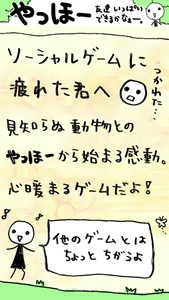 やっほー
友達いっぱい
できるかなぁー。
ソーシャルゲームに
疲れた君へ
つかれた…
見知らぬ動物との
やっほーから始まる感動。
心暖まるゲームだよ!
他のゲームとは
ちょっとちがうよ